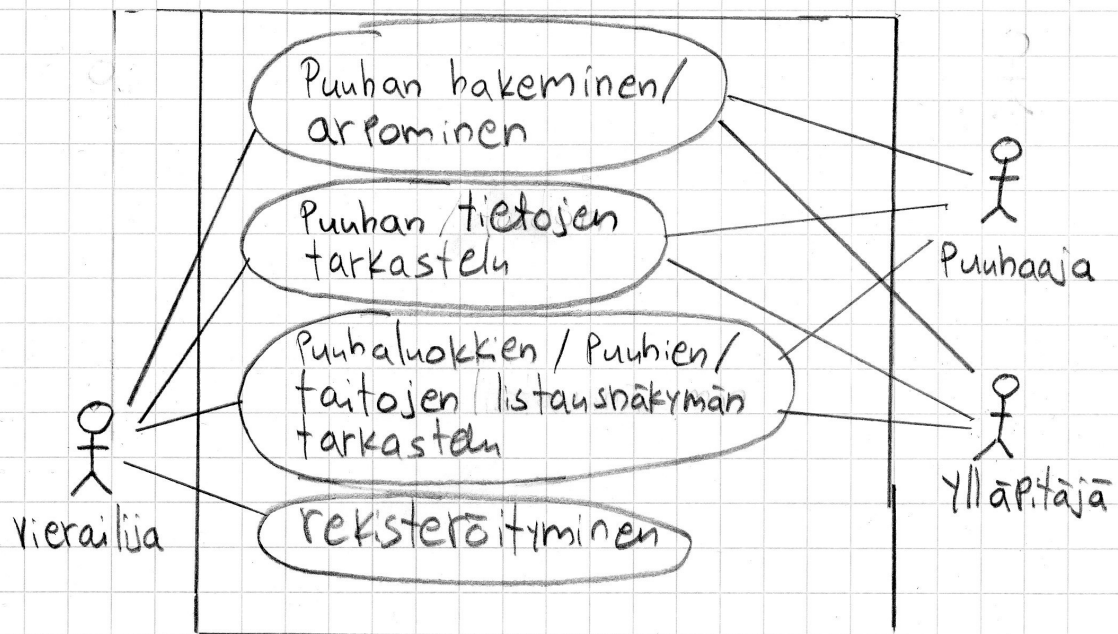 Puuhan hakeminen/
arpominen
Puuhan tietojen
tarkastelu
Puuhaluokkien / Puuhien /
taitojen listausnäkymän
tarkastelu
rekisteröityminen
vierailija
Puuhaaja
Ylläpitäjä